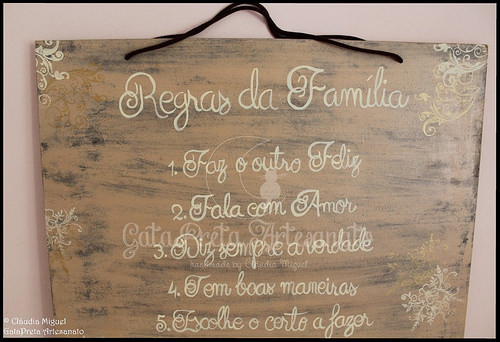 Regras da Família
1. Faz o outro Feliz
2. Fala com Amor
Gata Preta Artesanato
3. Diz sempre a verdade
handmade by Cláudia Miguel
4. Tem boas maneiras
5. Escolhe o certo a fazer
© Cláudia Miguel
GataPreta Artesanato